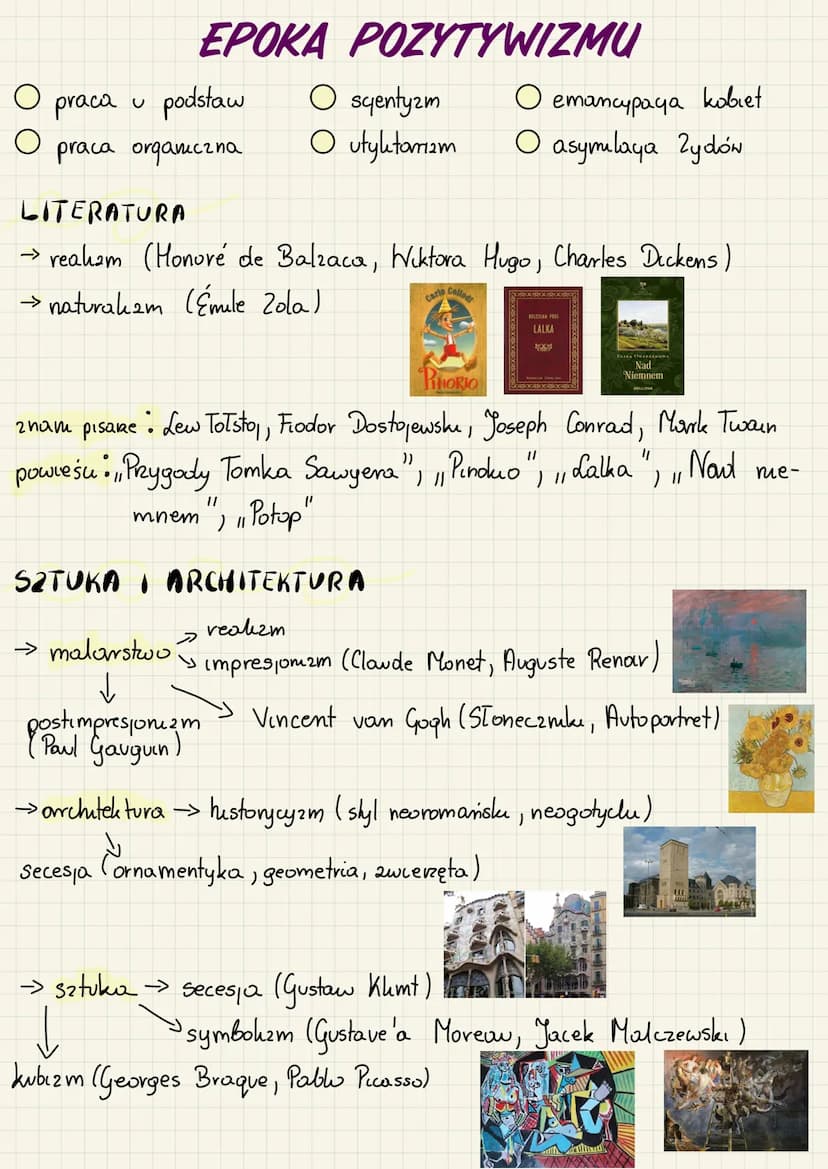 EPOKA POZYTYWIZMU
praca u podstaw
scjentyzm
emancypacja kobiet
praca organiczna
utylitaryzm
asymilacja Żydów
LITERATURA
→ realizm (Honoré de Balzaca, Wiktora Hugo, Charles Dickens)
→ naturalizm (Émile Zola)
Carlo Collodi
PINOKIO
BOLESŁAW PRUS
LALKA
Eliza Orzeszkowa
Nad
Niemnem
znani pisarze: Lew Tołstoj, Fiodor Dostojewski, Joseph Conrad, Mark Twain
powieści: „Przygody Tomka Sawyera", „Pinokio", „Lalka", „Nad nie-
mnem", „Potop"
SZTUKA I ARCHITEKTURA
realizm
→ malarstwo
impresjonizm (Claude Monet, Auguste Renoir)
postimpresjonizm
(Paul Gauguin)
Vincent van Gogh (Słoneczniki, Autoportret)
→ architektura → historycyzm (styl neoromański, neogotycki)
secesja (ornamentyka, geometria, zwierzęta)
→ sztuka → secesja (Gustaw Klimt)
symbolizm (Gustave'a Moreau, Jacek Malczewski)
kubizm (Georges Braque, Pablo Picasso)